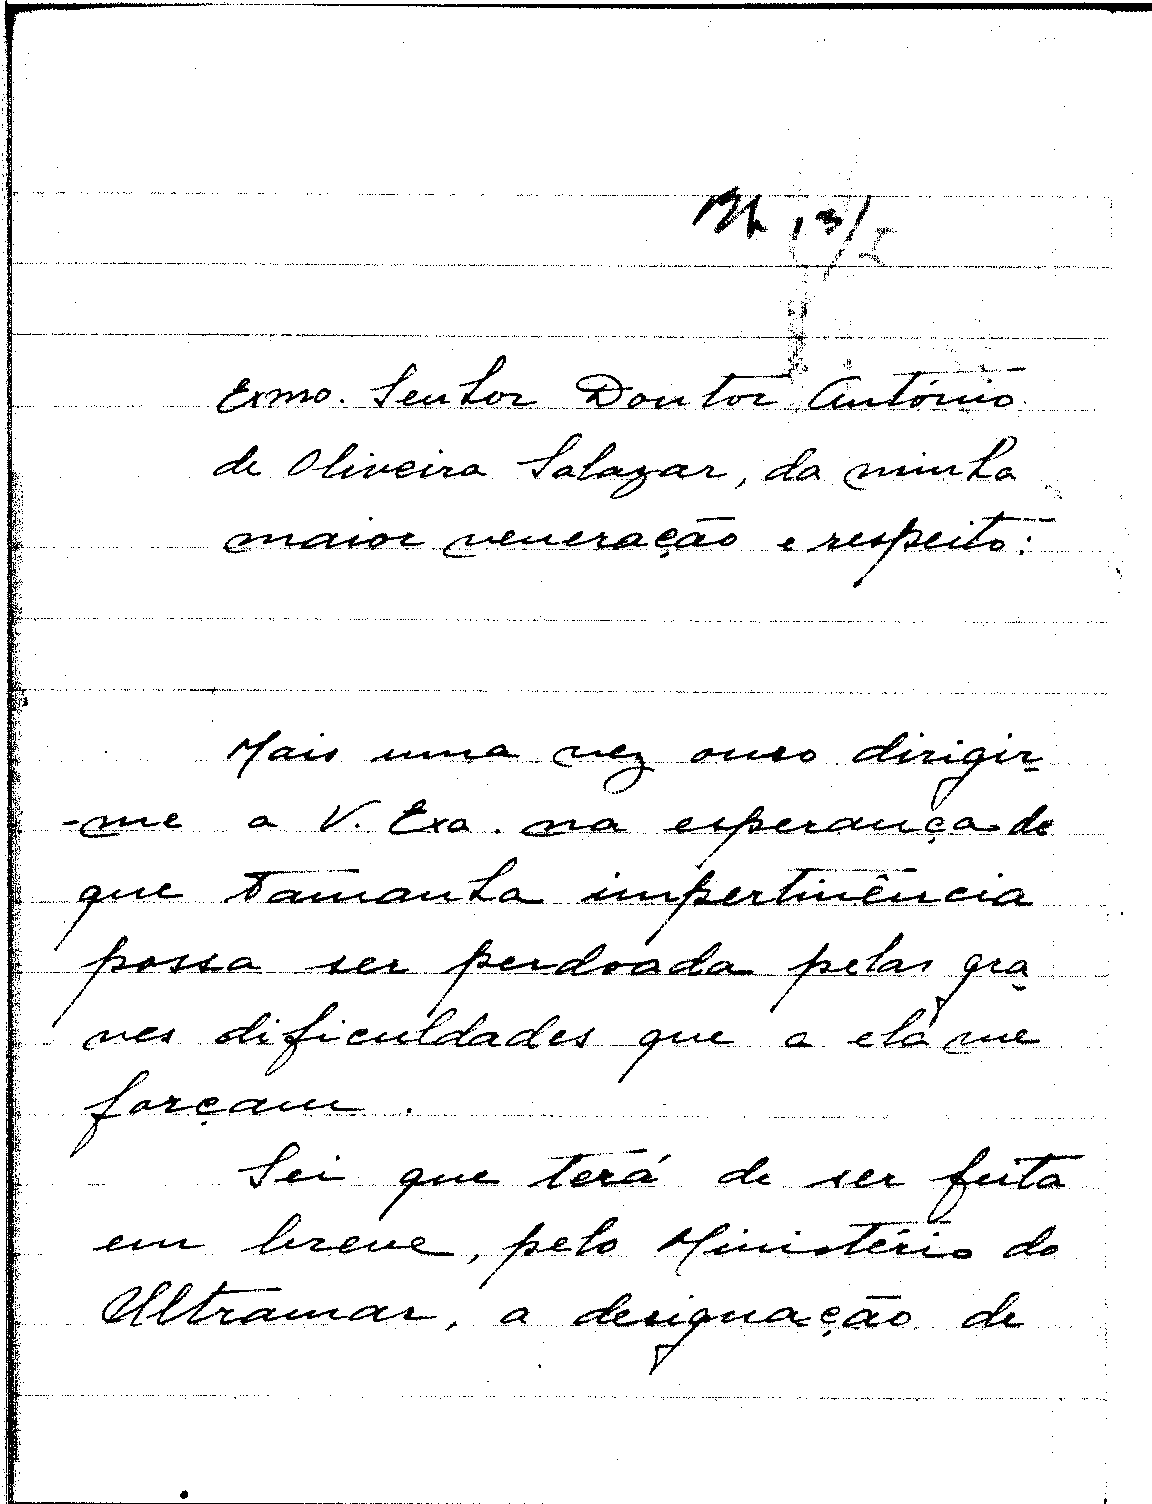 13/I
Exmo. Senhor Doutor António
de Oliveira Salazar, da minha
maior veneração e respeito:
Mais uma vez ouso dirigir-
-me a V. Exa. na esperança de
que tamanha impertinência
possa ser perdoada pelas gra-
ves dificuldades que a ela me
forçam.
Sei que terá de ser feita
em breve, pelo Ministério do
Ultramar, a designação de